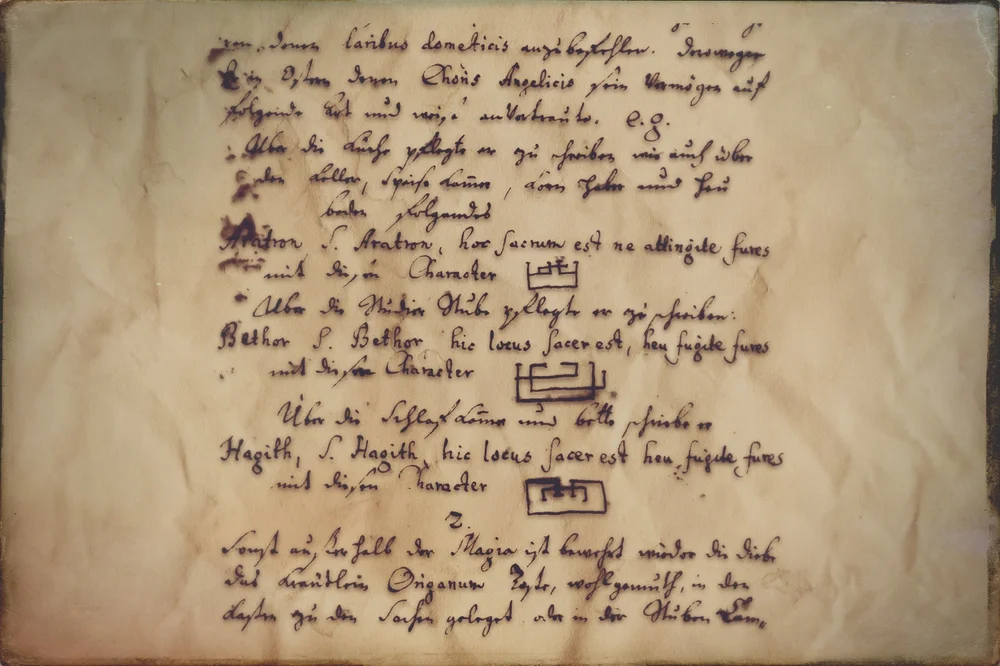 denen laribus dometicis anzubefehlen. derowegen
in Ostern denen Choris Angelicis sein Vermögen auf
folgende Art und weise anVortraute. e.g.
Über die Küche pflegte er zu schreiben wie auch über
den Keller, Speise Kam̄er, Korn Haber und Heu
boden folgendes
Aratron S. Aratron, hoc sacrum est ne attingite fures
mit diesen Character
Uber die Studier Stube pflegte er zu schreiben:
Bethor S. Bethor hic locus sacer est, heu fugite fures
mit diesen Character
Über die Schlaf Kam̄er und bette schriebe er
Hagith, S. Hagith hic locus sacer est heu fugite fures
mit diesen Character
2.
Sonst ausserhalb der Magia ist bewehrt wieder die diebe
das kräutlein Origanum Doste, wohlgemuth, in den
Kasten zu den Sachen geleget oder in der Stuben